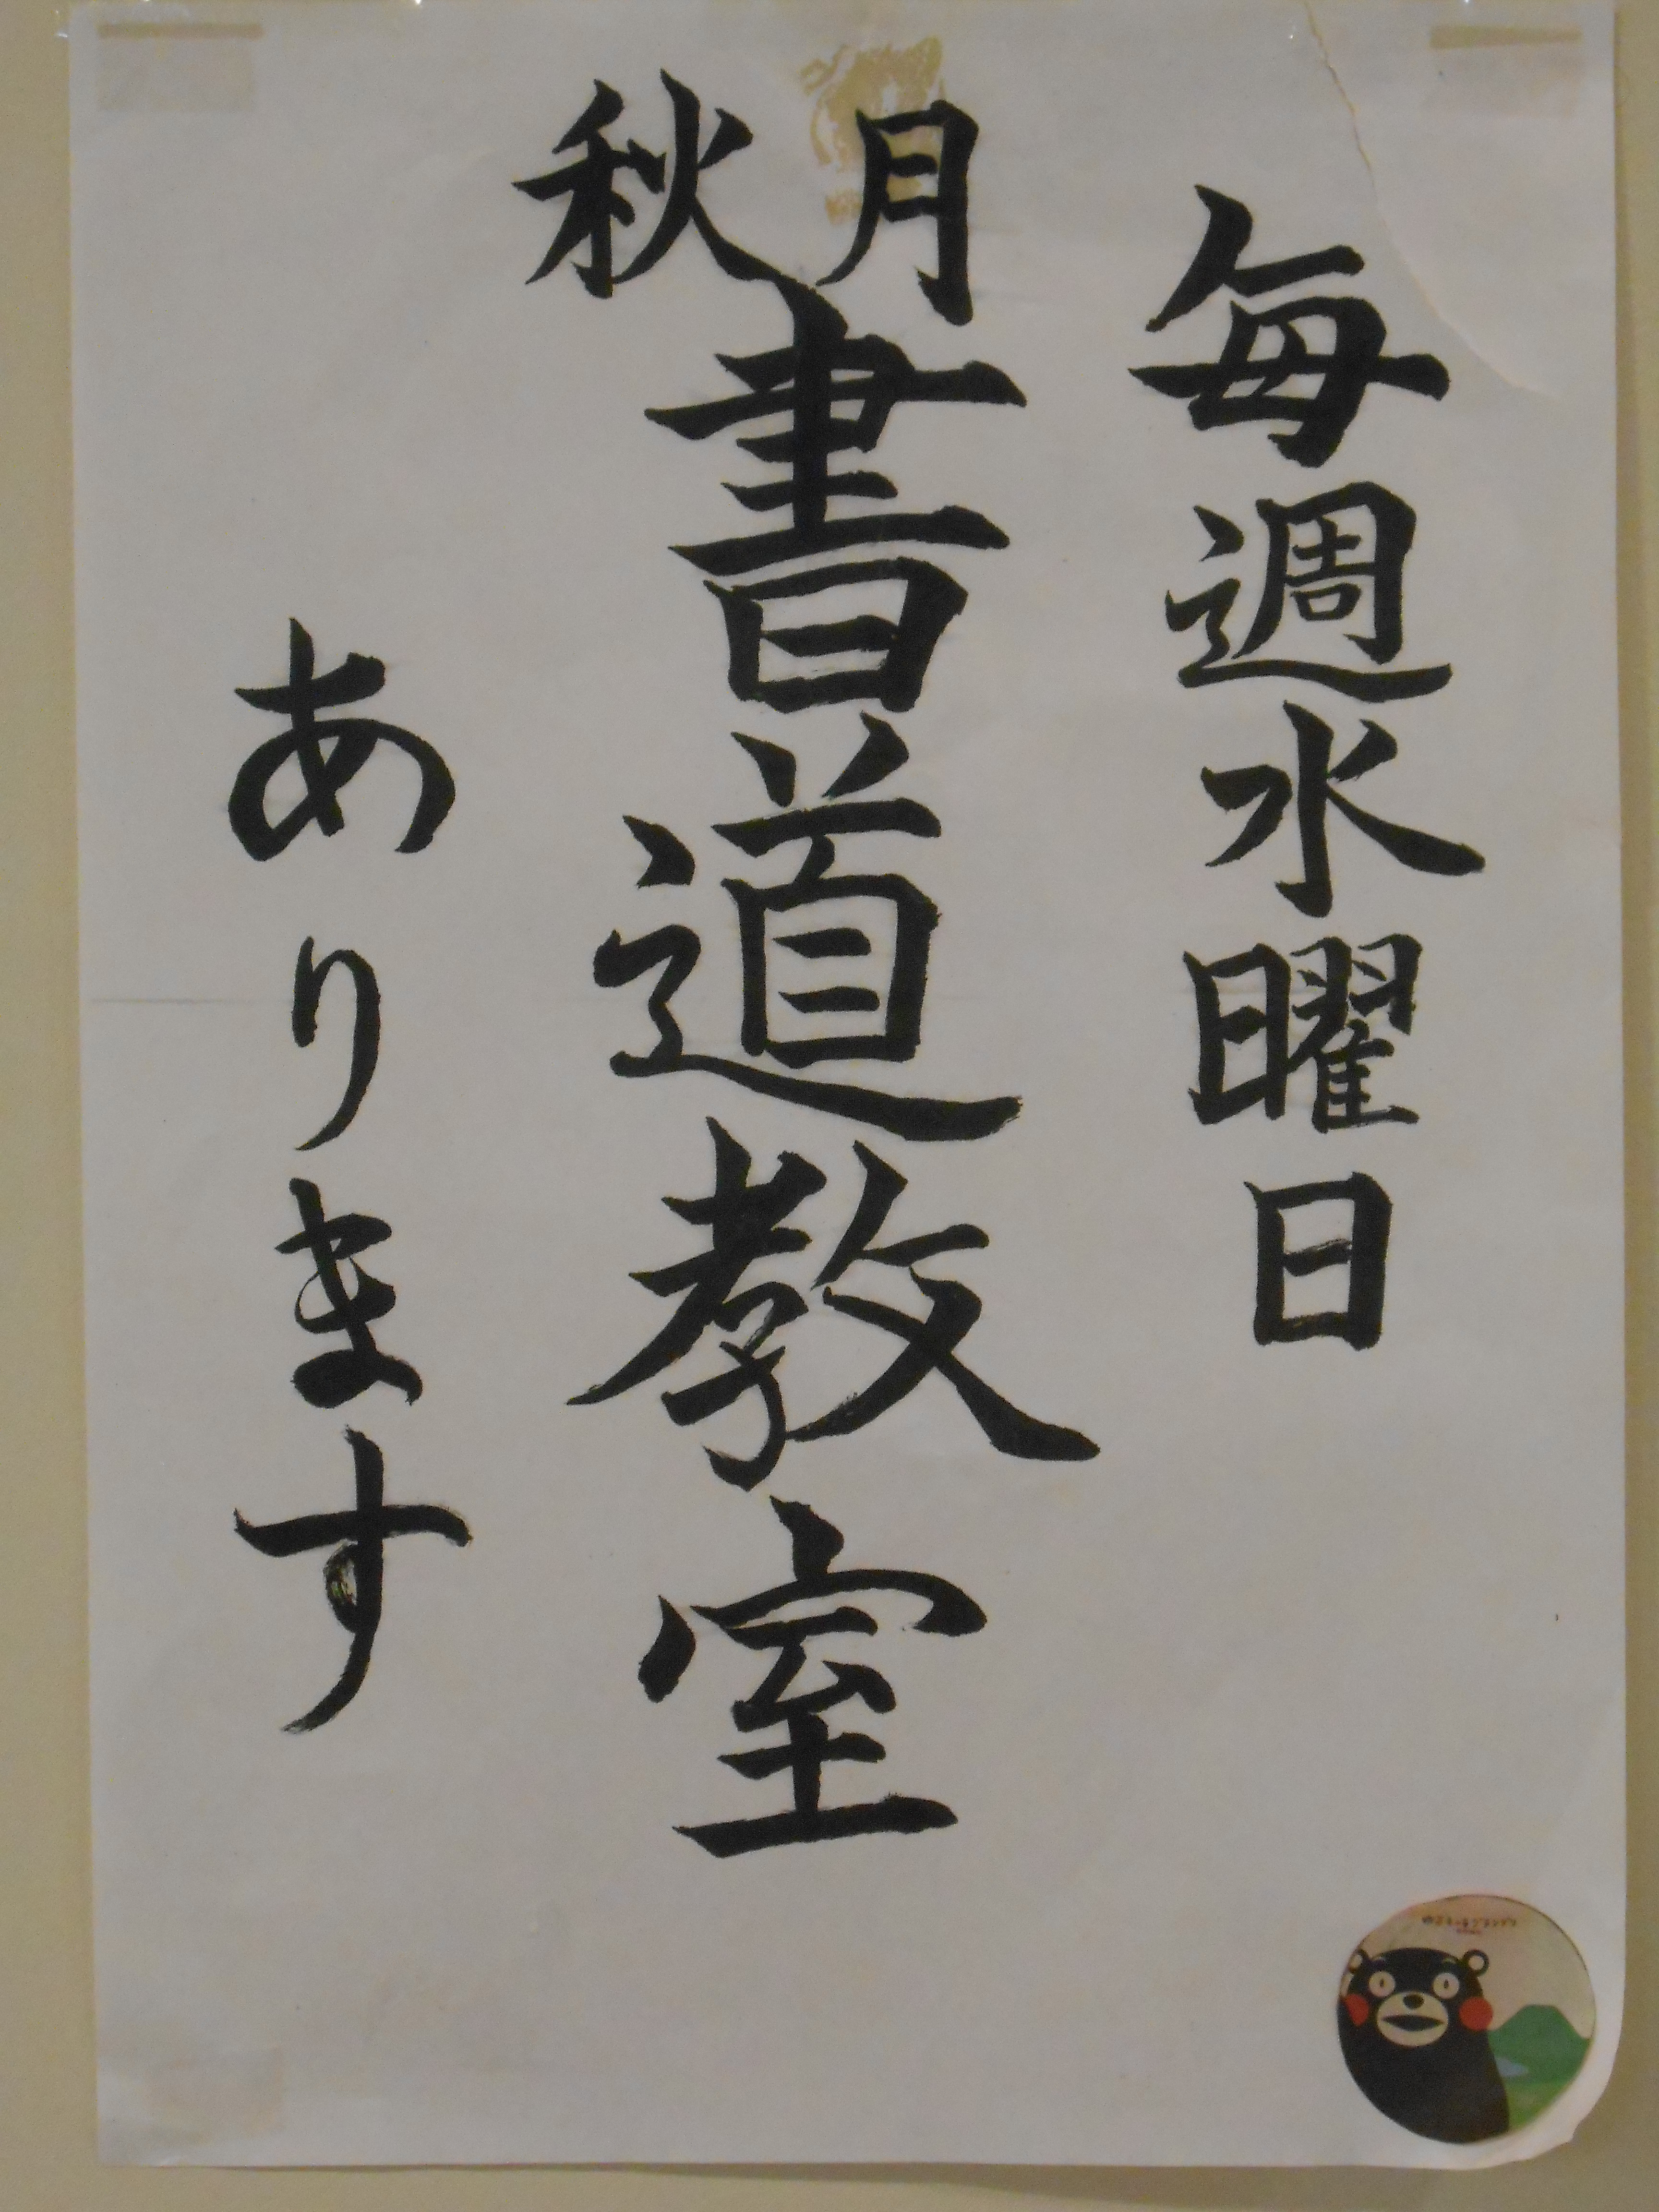 毎週水曜日
秋月
書道教室
あります